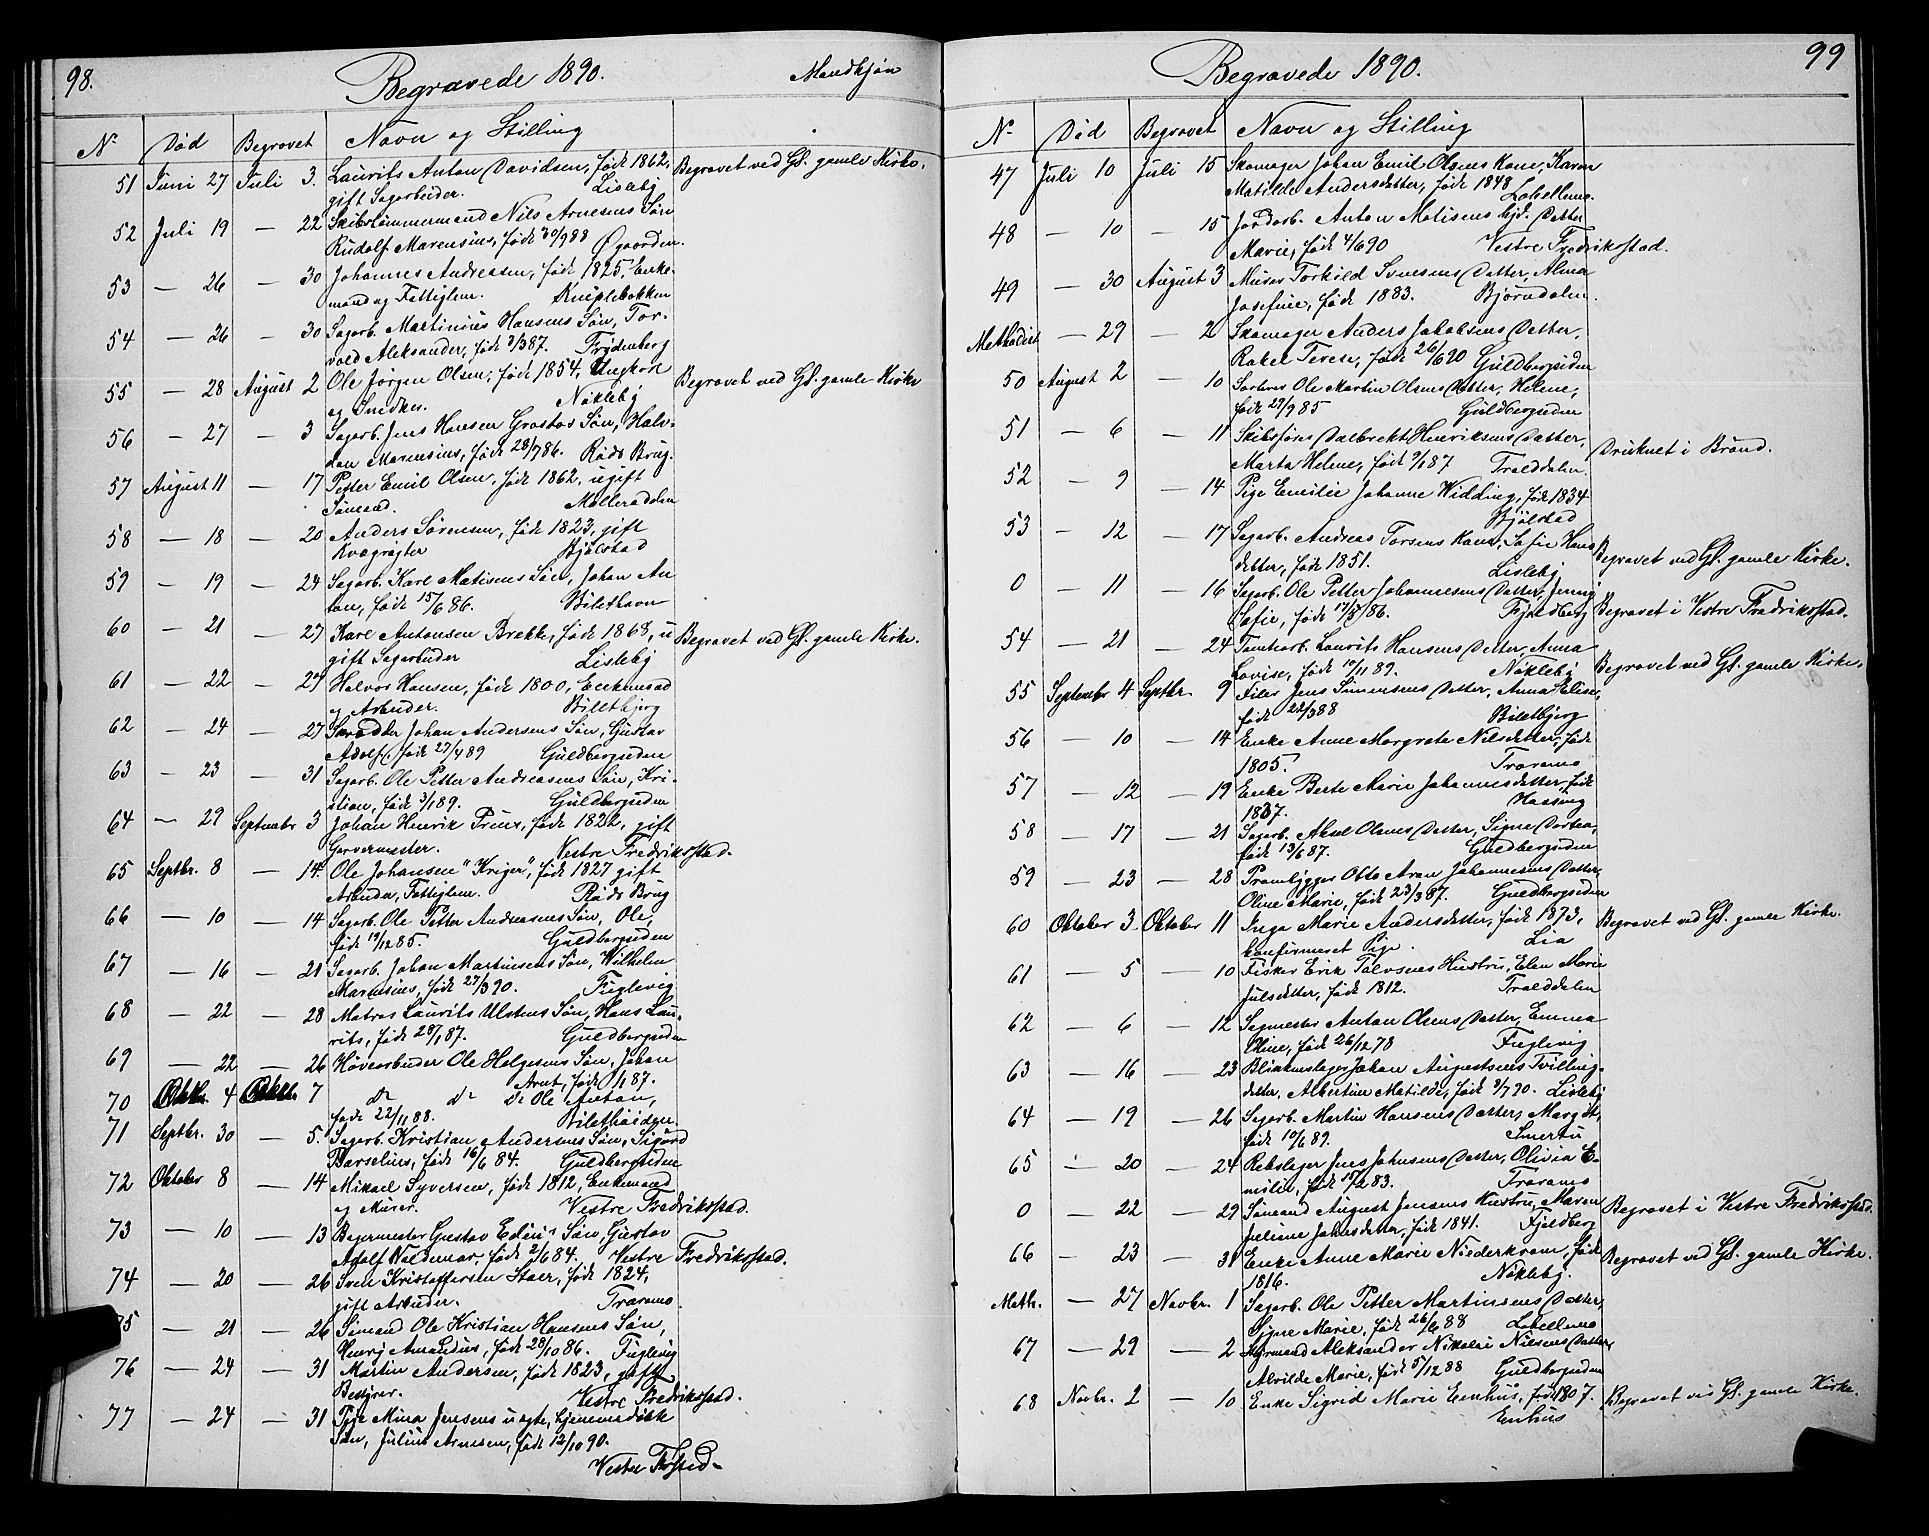 98.
Begravede 1890.
Mandkjøn
No Død Begravet Navn og Stilling
51 Juni 27 Juli 3. Laurits Anton Davidsen, født 1862, Begravet ved Gl. gamle Kirke.
gift Sagarbeider. Lisleby
52 Juli 19 — 22 Skibstømmermand Nils Arnesens Søn
Rudolf Marensius, født 30/988 Øgaarden.
53 — 26 — 30 Johannes Andreasen, født 1825, Enke-
mand og Fattiglem. Kniplebakken
54 — 26 — 30 Sagarb. Martinius Hansens Søn, Tor-
vald Aleksander, født /387. Frydenberg
55 — 28 August 2 Ole Jørgen Olsen, født 1854, Ungkarl Begravet ved Gl. gamle Kirke
og Snedker. Nøkleby
56 — 27 — 3 Sagarb. Jens Hansen Grostøs Søn, Halv-
dan Marensius, født 28/786. Røds Brug.
57 August 11 — 17 Petter Emil Olsen, født 1862, ugift
Sømand. Mølleraddalen
58 — 18 — 20 Anders Sørensen, født 1823, gift
Kvægrøgter Bjølstad
59 — 19 — 24 Sagarb. Karl Matisens Søn, Johan An
ton, født 15/686. Bilethavn
60 — 21 — 27 Karl Antonsen Brekke, født 1868, u Begravet ved Gl. gamle Kirke.
gift Sagarbeider Lisleby
61 — 22 — 27 Halvor Hansen, født 1800, Enkemand
og Arbeider. Biletbjerg
62 — 24 — 27 Skrædder Johan Andersens Søn, Gustav
Adolf, født 27/489 Guldbergsiden
63 — 23 — 31 Sagarb. Ole Petter Andreasens Søn, Kri-
stian, født 3/189. Guldbergsiden
64 — 29 Septembr 3 Johan Henrik Preus, født 1822, gift
Garvermester. Vestre Fredriksstad.
65 Septbr. 8 — 14. Ole Johansen "Kriger", født 1827 gift
Arbeider, Fattiglem. Røds Brug
66 — 10 — 14 Sagarb. Ole Petter Andreasens Søn, Ole,
født 19/1285. Guldbergsiden
67 — 16 — 21 Sagarb. Johan Martinsens Søn, Wilhelm
Marensius, født 27/390. Fuglevig
68 — 22 — 28 Matros Laurits Ulstens Søn, Hans Lau-
rits, født 28/187. Guldbergsiden
69 — 22 — 26 Høvearbeider Ole Helgesens Søn, Johan
Arnt, født /187.
70 Oktbr. 4 Oktbr. 7 do do do Ole Anton,
født 22/1188. Bilethaugen.
71 Septbr. 30 — 5. Sagarb. Kristian Andersens Søn, Sigurd
Barselius, født 16/684. Guldbergsiden
72 Oktober 8 — 14 Mikael Syversen, født 1812, Enkemand
og Murer. Vestre Fredriksstad.
73 — 10 — 13 Bagermester Gustav Søn, Gustav
Adolf Valdemar, født 2/684. Vestre Fredriksstad.
74 — 20 — 26 Sven Kristoffersen Staer, født 1824,
gift Arbeider. Traramo
75 — 21 — 26 Sømand Ole Kristian Hansens Søn,
Henry Amandus, født 28/1086. Fuglevig
76 — 24 — 31 Martin Andersen, født 1823, gift
Bestyrer. Vestre Fredriksstad.
77 — 24 — 31 Pige Mina Jensens uægte, hjemmedøbte
Søn, Julius Arnesen, født 12/1090.
Vestre Frstad.
99
Begravede 1890.
No Død Begravet Navn og Stilling
47 Juli 10 Juli 15 Skomager Johan Emil Olsens Kone, Karen
Matilde Andersdatter, født 1848 Labellemo.
48 — 10 — 15 Jordarb. Anton Matisens hjd. Datter
Marie, født 4/690 Vestre Fredriksstad.
49 — 30 August 3 Murer Torkild Svensens Datter, Alma
Josefine, født 1883. Bjørndalen.
Methodist — 29 — 2 Skomager Anders Jakobsens Datter,
Rakel Terese, født 26/690 Guldbergsiden
50 August 2 — 10 Sorterer Ole Martin Olsens Datter, Helene,
født 29/985 Guldbergsiden
51 — 6 — 11 Skibsfører Dalbrekt Henriksens Datter, Druknet i Brønd.
Marta Helene, født 9/187 Træddalen.
52 — 9 — 14 Pige Emilie Johanne Widding, født 1834
Bjølstad
53 — 12 — 17 Sagarb. Andreas Torsens Kone, Sofie Hans Begravet ved Gl. gamle Kirke.
datter, født 1851. Lisleby
0 — 11 — 16 Sagarb. Ole Petter Johannesens Datter, Jenny Begravet i Vestre Fredriksstad.
Sofie, født 17/886. Fjeldberg
54 — 21 — 24 Tomtearb. Laurits Hansens Datter, Anna Begravet ved Gl. gamle Kirke.
Lovise, født 10/1189. Nøkleby
55 September 4 Septbr. 9 Filer Jens Simensens Datter, Anna Elise,
født 22/388 Biletbjerg
56 — 10 — 14 Enke Anne Margrete Nilsdatter, født
1805. Traramo
57 — 12 — 19 Enke Berte Marie Johannesdatter, født
1837. Haasing
58 — 17 — 21 Sagarb. Aksel Olsens Datter, Signe Dortea,
født 13/687. Guldbergsiden
59 — 23 — 28 Prambygger Otto Aran Johannesens Datter,
Oline Marie, født 23/387. Guldbergsiden
60 Oktober 3. Oktober 11 Inga Marie Andersdatter, født 1873, Begravet ved Gl. gamle Kirke.
konfirmeret Pige. Lia
61 — 5 — 10 Fisker Erik Talvsens Hustru, Elen Marie
Julsdatter, født 1812. Træddalen
62 — 6 — 12 Sagmester Anton Olsens Datter, Emma
Oline, født 26/1278 Fuglevig
63 — 16 — 23 Blikkenslager Johan Augustsens Tvilling-
datter, Albertine Matilde, født 3/790. Lisleby
64 — 19 — 26 Sagarb. Martin Hansens Datter, Margit,
født 10/689. Smertu
65 — 20 — 24 Rebslager Jens Johnsens Datter, Olivia E-
milie, født 15/1283. Traramo
0 — 22 — 29 Sømand August Jensens Hustru, Maren Begravet i Vestre Fredriksstad.
Juliane Johnsdatter, født 1841. Fjeldberg
66 — 23 — 31 Enke Anne Marie Niederkrom, født Begravet ved Gl. gamle Kirke.
1816. Nøkleby.
Meth. — 27 Novbr. 1 Sagarb. Ole Petter Martinsens Datter,
Signe Marie, født 26/688 Labellemo
67 — 29 — 2 Styrmand Aleksander Nikolai Nilsens Datter
Alvilde Marie, født 5/1288 Guldbergsiden
68 Novbr. 2 — 10 Enke Sigrid Marie Eenhus, født 1807. Begravet ved Gl. gamle Kirke.
Enhus